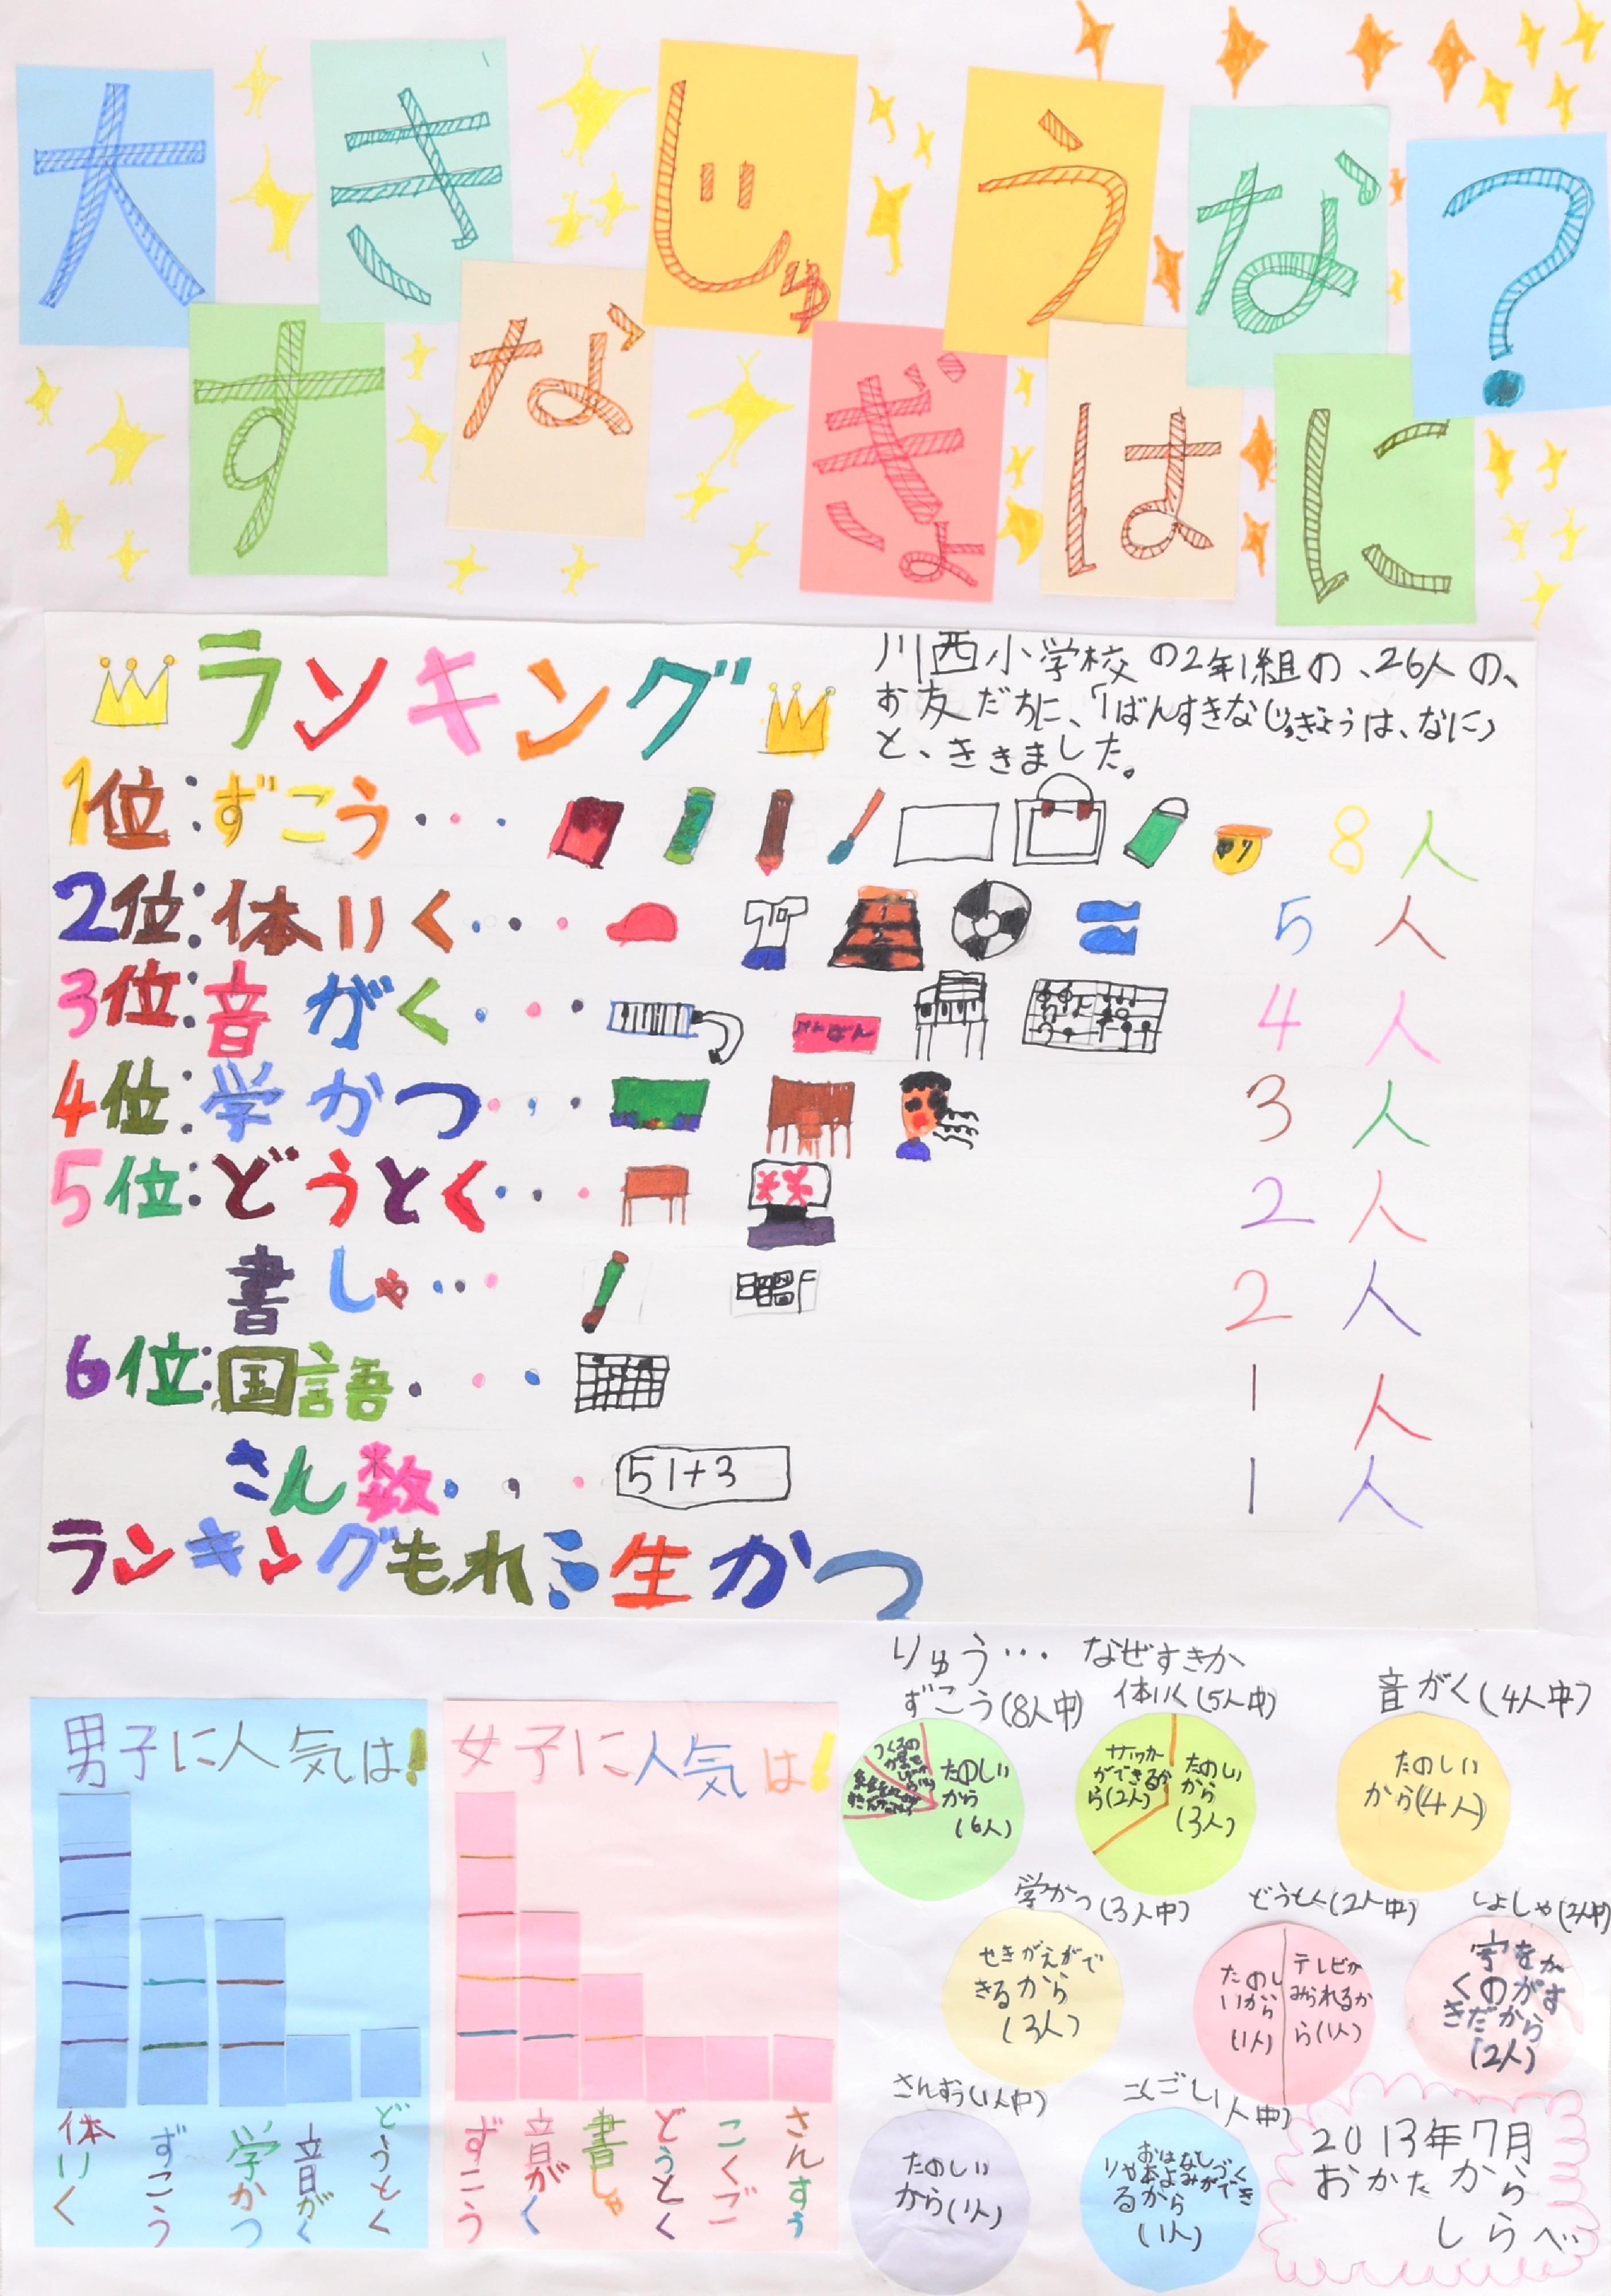 大きじゅうな?
すなぎょはに
ランキング
川西小学校の2年1組の、26人の、
お友だちに、「1ばんすきなじゅぎょうは、なに」
と、ききました。
1位:ずこう・・・ 8人
2位:体いく・・・ 5人
3位:音がく・・・ けんばん 4人
4位:学かつ・・・ 3人
5位:どうとく・・・ 2人
書しゃ・・・ 2人
6位:国語・・・ 1人
さん数・・・ 51+3 1人
ランキングもれ 生かつ
男子に人気は!
体いく
ずこう
学かつ
音がく
どうとく
女子に人気は!
ずこう
音がく
書しゃ
どうとく
こくご
さんすう
りゅう… なぜすきか
ずこう(8人中)
たのしい
から
(6人)
体いく(5人中)
サッカー
ができるか
ら(2人)
たのしい
から
(3人)
音がく(4人中)
たのしい
から(4人)
学かつ(3人中)
せきがえがで
きるから
(3人)
どうとく(2人中)
たのし
いから
(1人)
テレビが
みられるか
ら(1人)
しょしゃ(2人中)
字をか
くのがす
きだから
(2人)
さんすう(1人中)
たのしい
から(1人)
こくご(1人中)
おはなしづく
りや本よみができ
るから
(1人)
2013年7月
おかたから
しらべ